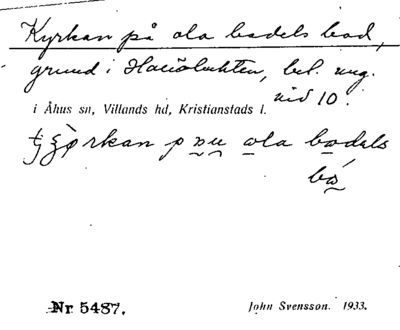 Kyrkan på ola badels bad,
grund i Hanöbukten, bel. ung.
vid 10.
i Åhus sn, Villands hd, Kristianstads l.
rkan p ola badels
Nr 5487. John Svensson. 1933.